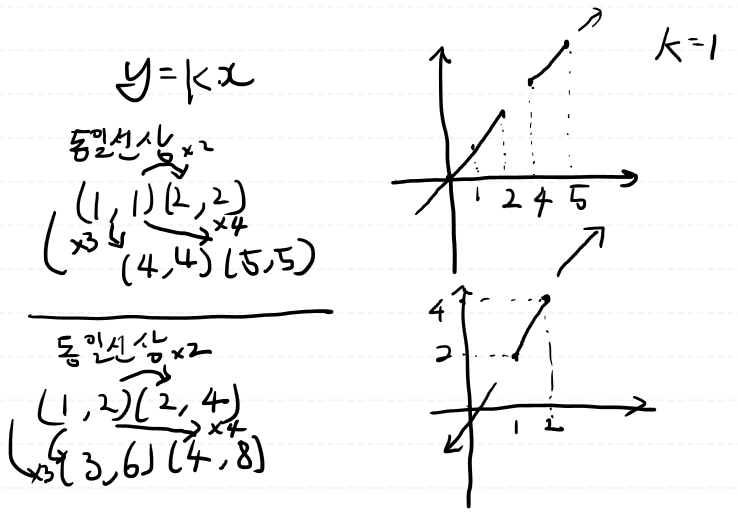 y=kx
동일선상 ×2
(1,1)(2,2)
×3 ×4
(4,4)(5,5)
동일선상 ×2
(1,2)(2,4)
×4
×3 (3,6)(4,8)
k=1
1 2 4 5
4
2
1 2